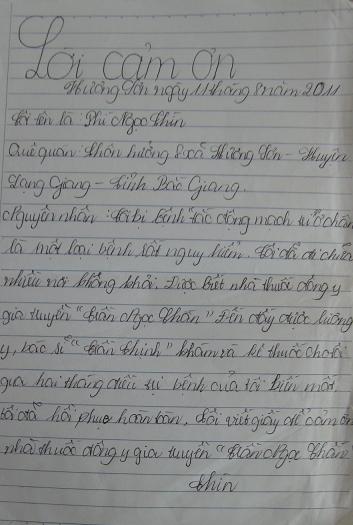 Lời cảm ơn
Hương Sơn ngày 11 tháng 8 năm 2011
Tôi tên là: Phí Ngọc Thìn
Quê quán: Thôn hưởng 8 xã Hương Sơn - Huyện
Lạng Giang - Tỉnh Bắc Giang.
Nguyên nhân: Tôi bị bệnh tắc động mạch tứ chân
là một loại bệnh rất nguy hiểm. Tôi đã đi chữa
nhiều nơi không khỏi. Được biết nhà thuốc đông y
gia truyền "Trần Ngọc Chấn" Đến đây được lương
y, bác sĩ "Trần Thịnh" khám và kê thuốc cho tôi
qua hai tháng điều trị bệnh của tôi biến mất,
tôi đã hồi phục hoàn toàn. Tôi viết giấy để cảm ơn
nhà thuốc đông y gia truyền "Trần Ngọc Chấn"
Thìn